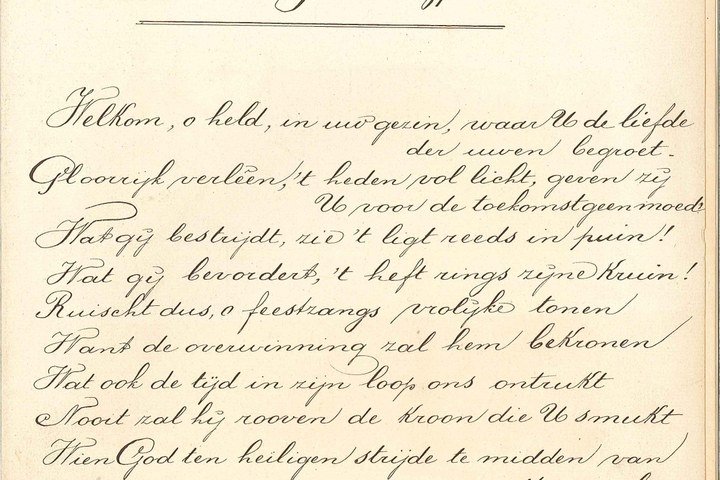 Welkom, o held, in uw gezin, waar U de liefde
der uwen begroet.
Gloorrijk verlêen, 't heden vol licht, geven zij
U voor de toekomst geen moed?
Wat gij bestrijdt, zie 't ligt reeds in puin!
Wat gij bevordert, 't heft rings zijne kruin!
Ruischt dus, o feestzangs vrolijke tonen
Want de overwinning zal hem bekronen
Wat ook de tijd in zijn loop ons ontrukt
Nooit zal hij rooven de kroon die U smukt
Wien God ten heiligen strijde te midden van